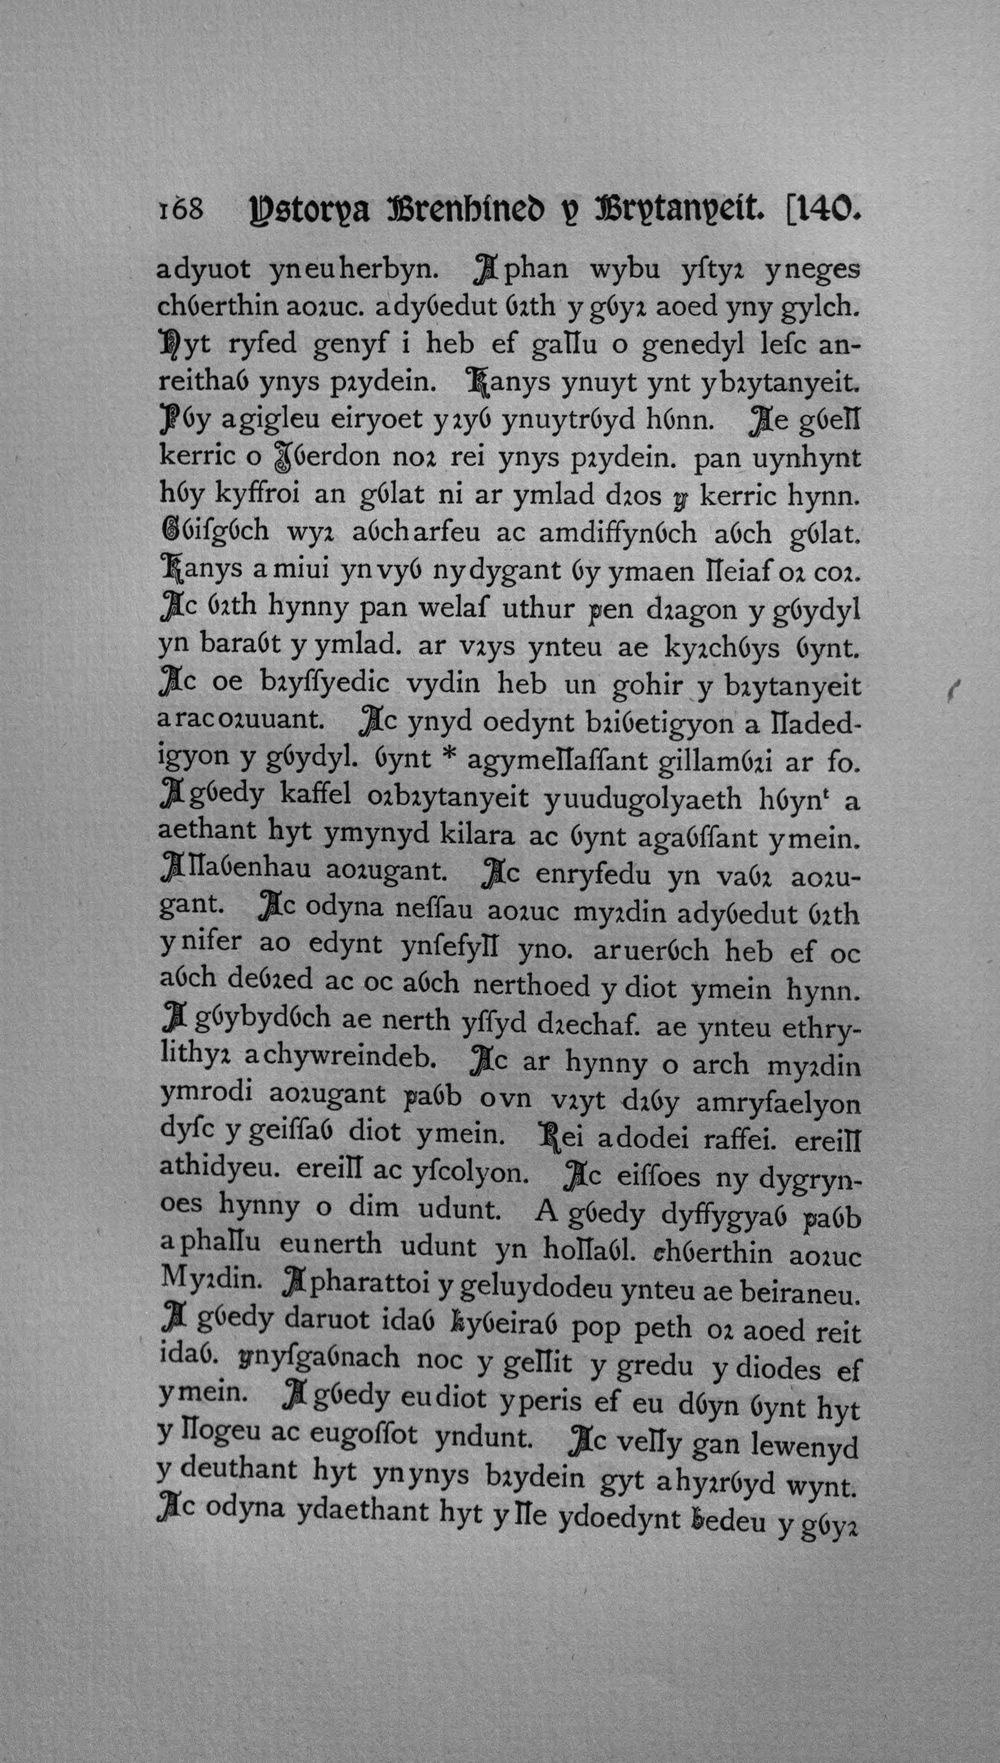 168 Ystorya Brenhined y Brytanyeit. [140.
adyuot yneuherbyn. Aphan wybu yſtyꝛ yneges
chỽerthin aoꝛuc. adyỽedut ỽꝛth y gỽyꝛ aoed yny gylch.
Nyt ryfed genyf i heb ef gaỻu o genedyl leſc an-
reithaỽ ynys pꝛydein. Kanys ynuyt ynt ybꝛytanyeit.
Pỽy agigleu eiryoet yꝛyỽ ynuytrỽyd hỽnn. Ae gỽeỻ
kerric o Jỽerdon noꝛ rei ynys pꝛydein. pan uynhynt
hỽy kyffroi an gỽlat ni ar ymlad dꝛos y kerric hynn.
Gỽiſgỽch wyꝛ aỽcharfeu ac amdiffynỽch aỽch gỽlat.
Kanys amiui ynvyỽ nydygant ỽy ymaen ỻeiaf oꝛ coꝛ.
Ac ỽꝛth hynny pan welaſ uthur pen dꝛagon y gỽydyl
yn baraỽt y ymlad. ar vꝛys ynteu ae kyꝛchỽys ỽynt.
Ac oe bꝛyſſyedic vydin heb un gohir y bꝛytanyeit
aracoꝛuuant. Ac ynyd oedynt bꝛiỽetigyon a ỻaded-
igyon y gỽydyl. ỽynt * agymeỻaſſant gillamỽꝛi ar fo.
Agỽedy kaffel oꝛbꝛytanyeit yuudugolyaeth hỽynᵗ a
aethant hyt ymynyd kilara ac ỽynt agaỽſſant ymein.
Aỻaỽenhau aoꝛugant. Ac enryfedu yn vaỽꝛ aoꝛu-
gant. Ac odyna neſſau aoꝛuc myꝛdin adyỽedut ỽꝛth
ynifer ao edynt ynſefyỻ yno. aruerỽch heb ef oc
aỽch deỽꝛed ac oc aỽch nerthoed y diot ymein hynn.
A gỽybydỽch ae nerth yſſyd dꝛechaf. ae ynteu ethry-
lithyꝛ achywreindeb. Ac ar hynny o arch myꝛdin
ymrodi aoꝛugant paỽb ovn vꝛyt dꝛỽy amryfaelyon
dyſc y geiſſaỽ diot ymein. Rei adodei raffei. ereiỻ
athidyeu. ereiỻ ac yſcolyon. Ac eiſſoes ny dygryn-
oes hynny o dim udunt. A gỽedy dyffygyaỽ paỽb
aphaỻu eunerth udunt yn hoỻaỽl. chỽerthin aoꝛuc
Myꝛdin. Apharattoi y geluydodeu ynteu ae beiraneu.
A gỽedy daruot idaỽ kyỽeiraỽ pop peth oꝛ aoed reit
idaỽ. ynyſgaỽnach noc y geỻit y gredu y diodes ef
ymein. A gỽedy eudiot yperis ef eu dỽyn ỽynt hyt
y ỻogeu ac eugoſſot yndunt. Ac veỻy gan lewenyd
y deuthant hyt ynynys bꝛydein gyt ahyꝛrỽyd wynt.
Ac odyna ydaethant hyt y ỻe ydoedynt bedeu y gỽyꝛ